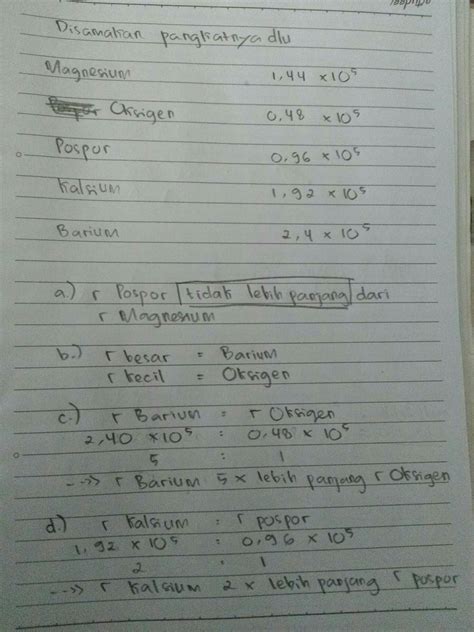 Disamakan pangkatnya dlu
Magnesium 1,44 × 10⁵
Oksigen 0,48 × 10⁵
Pospor 0,96 × 10⁵
Kalsium 1,92 × 10⁵
Barium 2,4 × 10⁵
a.) r Pospor tidak lebih panjang dari
r Magnesium
b.) r besar = Barium
r kecil = Oksigen
c.) r Barium : r Oksigen
2,40 × 10⁵ : 0,48 × 10⁵
5 : 1
-->> r Barium 5 × lebih panjang r Oksigen
d.) r Kalsium : r pospor
1,92 × 10⁵ : 0,96 × 10⁵
2 : 1
-->> r Kalsium 2 × lebih panjang r pospor